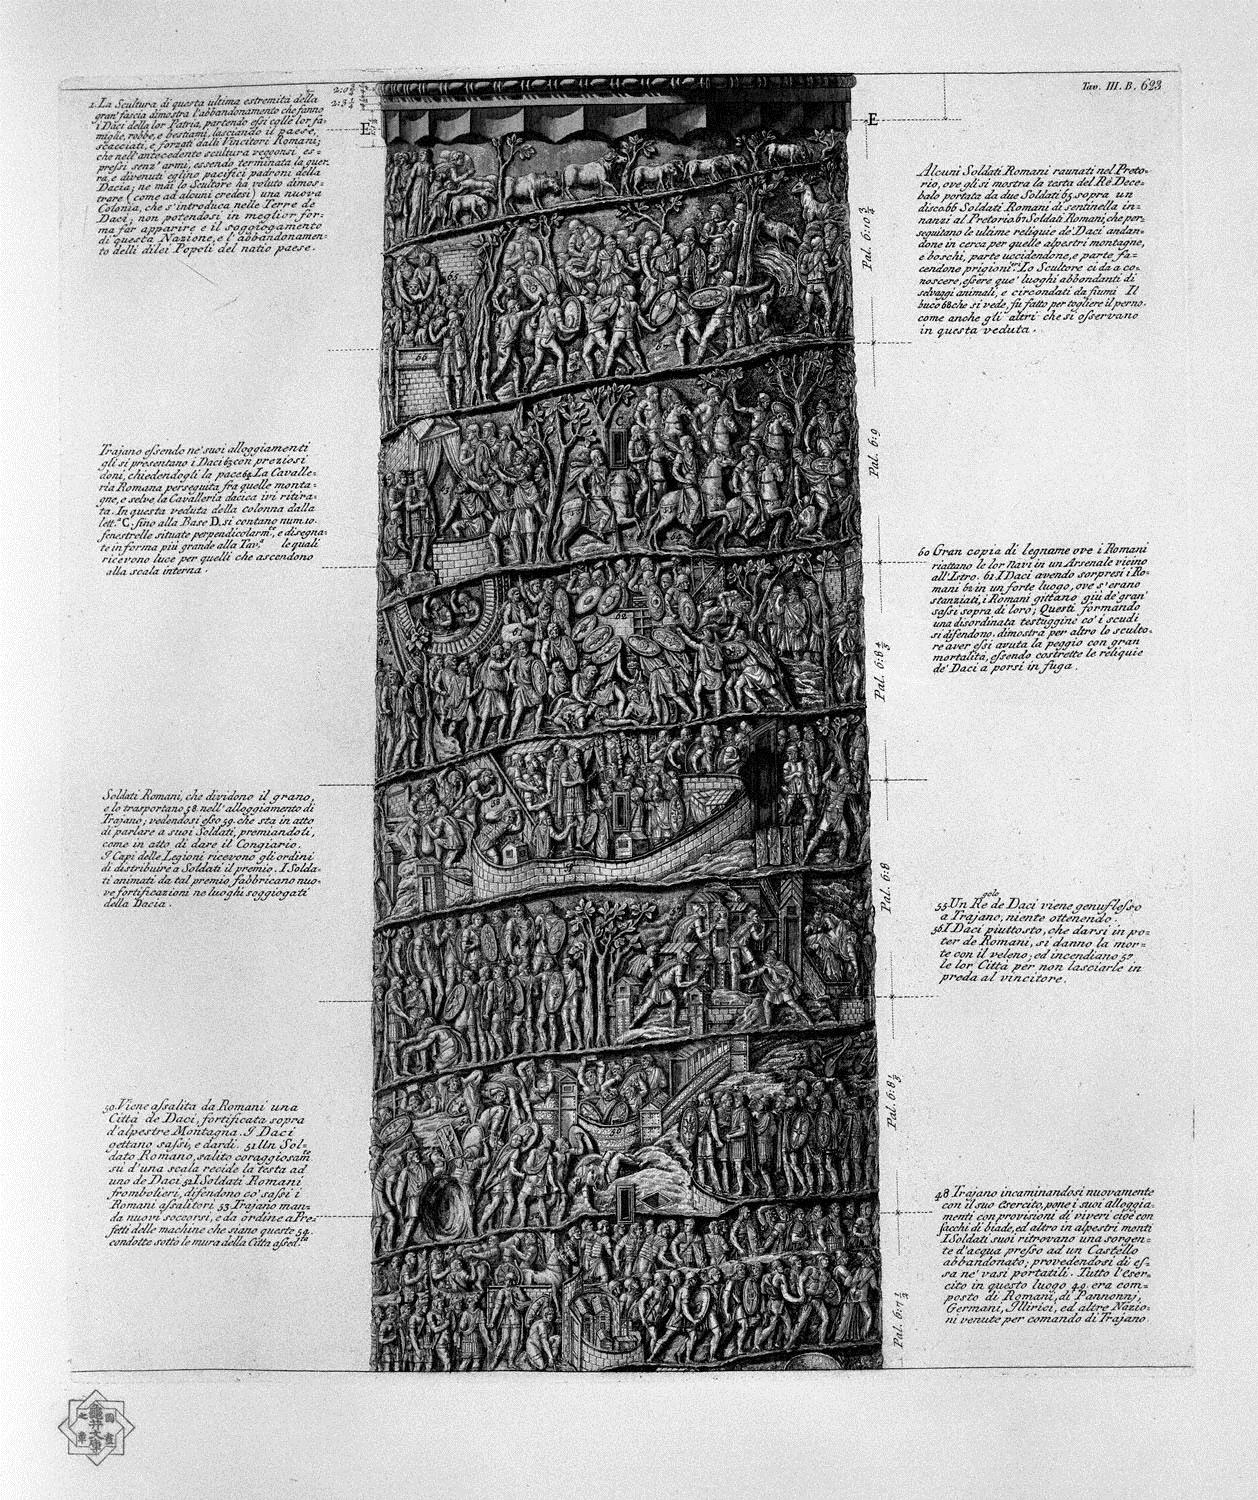 Tav. III. B. 623
1. La Scultura di questa ultima estremità della
gran' fascia dimostra l'abbandonamento che fanno
i Daci della lor Patria, partendo essi colle lor fa=
miglie, robbe, e bestiami, lasciando il paese,
scacciati, e forzati dalli Vincitori Romani;
che nell'antecedente scultura veggonsi es=
pressi senz' armi, essendo terminata la guer=
ra, e divenuti eglino pacifici padroni della
Dacia; ne mai lo Scultore ha voluto dimos=
trare (come ad alcuni credesi) una nuova
Colonia, che s'introduca nelle Terre de
Daci; non potendosi in meglior for=
ma far apparire e il soggiogamento
di questa Nazione, e l'abbandonamen=
to delli di loi Popoli del natio paese.
E
Trajano essendo ne' suoi alloggiamenti
gli si presentano i Daci 63 con preziosi
doni, chiedendogli la pace. 64. La Cavalle=
ria Romana perseguita fra quelle monta=
gne, e selve, la Cavalleria dacica ivi ritira=
ta. In questa veduta della colonna dalla
lett.ª C. fino alla Base D. si contano num. 10.
fenestrelle situate perpendicolarm.te, e disegna=
te in forma più grande alla Tav.ª le quali
ricevono luce per quelli che ascendono
alla scala interna.
Soldati Romani, che dividono il grano,
e lo trasportano 58. nell'alloggiamento di
Trajano; vedendosi esso 59. che sta in atto
di parlare a suoi Soldati, premiandoti,
come in atto di dare il Congiario.
I Capi delle Legioni ricevono gli ordini
di distribuire a Soldati il premio. I Solda=
ti animati da tal premio fabbricano nuo=
ve fortificazioni ne luoghi soggiogati
della Dacia.
50. Viene assalita da Romani una
Città de Daci, fortificata sopra
d'alpestre Montagna. I Daci
gettano sassi, e dardi. 51 Un Sol=
dato Romano, salito coraggiosam.te
su d'una scala recide la testa ad
uno de Daci. 52. I Soldati Romani
frombolieri, difendono co' sassi i
Romani assalitori 53 Trajano man=
da nuovi soccorsi, e da ordine a Pre=
fetti delle machine che siano queste 54.
condotte sotto le mura della Città assed.ta
E
Alcuni Soldati Romani raunati nel Preto=
rio, ove gli si mostra la testa del Rè Dece=
balo portata da due Soldati 65 sopra un
disco. 66 Soldati Romani di sentinella in=
nanzi al Pretorio 67 Soldati Romani, che per=
seguitano le ultime reliquie de' Daci andan=
done in cerca per quelle alpestri montagne,
e boschi, parte uccidendone, e parte fa=
cendone prigioni. Lo Scultore ci da a co=
noscere, essere que' luoghi abbondanti di
selvaggi animali, e circondati da fiumi Il
buco 68 che si vede, fu fatto per togliere il perno.
come anche gli altri che si osservano
in questa veduta.
60 Gran copia di legname ove i Romani
riattano le lor Navi in un Arsenale vicino
all'Istro. 61. I Daci avendo sorpresi i Ro=
mani 62 in un forte luogo, ove s'erano
stanziati, i Romani gittano giù de' gran'
sassi sopra di loro; Questi formando
una disordinata testuggine co' i scudi
si difendono. dimostra per altro lo sculto=
re aver essi avuta la peggio con gran
mortalità, essendo costrette le reliquie
de' Daci a porsi in fuga.
55. Un Re de Daci viene genuflesso
a Trajano, niente ottenendo.
56. I Daci piuttosto, che darsi in po=
ter de Romani, si danno la mor=
te con il veleno; ed incendiano 57
le lor Città per non lasciarle in
preda al vincitore.
48 Trajano incaminandosi nuovamente
con il suo Esercito, pone i suoi alloggia=
menti con provisioni di viveri cioè con
sacchi di biade, ed altro in alpestri monti
I Soldati suoi ritrovano una sorgen=
te d'acqua presso ad un Castello
abbandonato; provedendosi di es=
sa ne' vasi portatili. Tutto l'eser=
cito in questo luogo 49. era com=
posto di Romani, di Pannonnj,
Germani, Illirici, ed altre Nazio=
ni venute per comando di Trajano
Pal. 6:10 2/3
Pal. 6:9
Pal. 6:8 4/5
Pal. 6:8
Pal. 6:8 1/3
Pal. 6:7 1/2